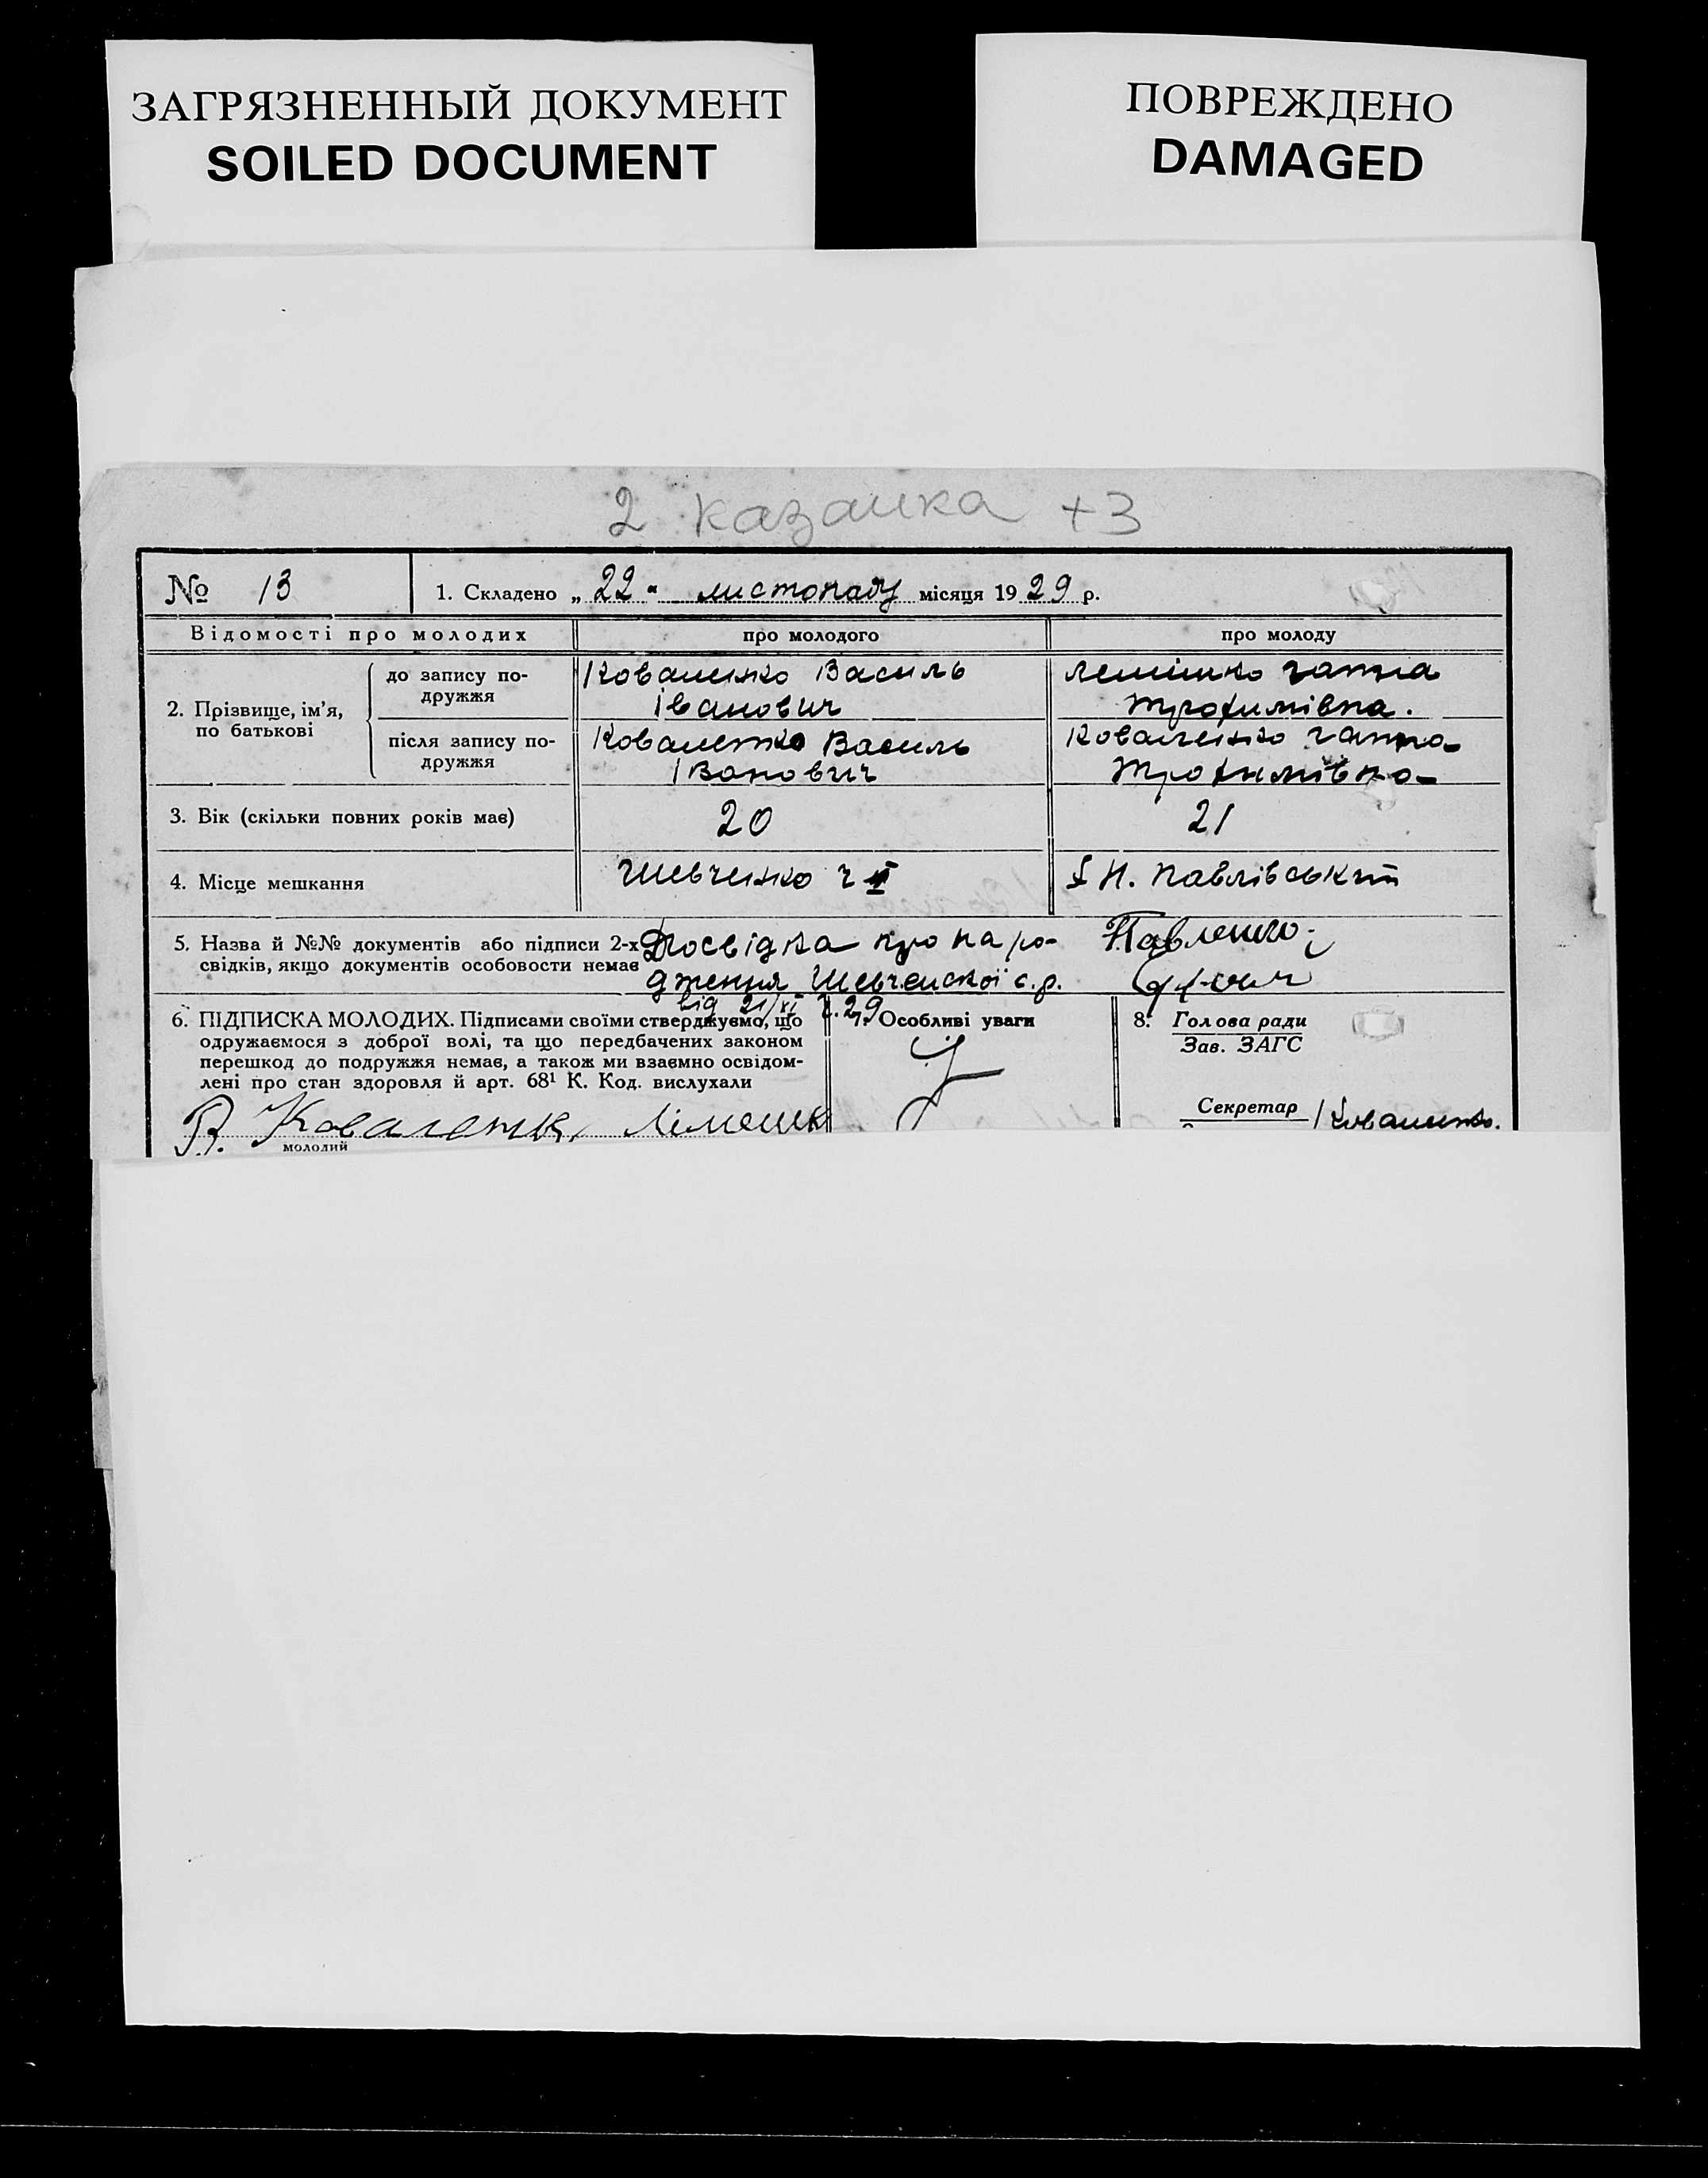 ЗАГРЯЗНЕННЫЙ ДОКУМЕНТ
SOILED DOCUMENT
ПОВРЕЖДЕНО
DAMAGED
2 казанка +3
№ 13
1. Складено „ 22 " листопаду місяця 19 29 р.
Відомості про молодих
про молодого
про молоду
2. Прізвище, ім'я, по батькові
до запису по-
дружжя
Коваленко Василь
Іванович
Ганна
Трофимівна.
після запису по-
дружжя
Коваленко Василь
Іванович
Коваленко Ганна
Трофимівна
3. Вік (скільки повних років має)
20
21
4. Місце мешкання
Шевченко ч II
Н. Павлівський
5. Назва й №№ документів або підписи 2-х
свідків, якщо документів особовости немає
Посвідка про наро-
дження Шевченської с.р.
від 21/XI 29
Павленко
6. ПІДПИСКА МОЛОДИХ. Підписами своїми стверджуємо, що
одружаємося з доброї волі, та що передбачених законом
перешкод до подружжя немає, а також ми взаємно освідом-
лені про стан здоровля й арт. 68¹ К. Код. вислухали
В. Коваленко
молодий
7. Особливі уваги
8. Голова ради
Зав. ЗАГС
Секретар
Коваленко.